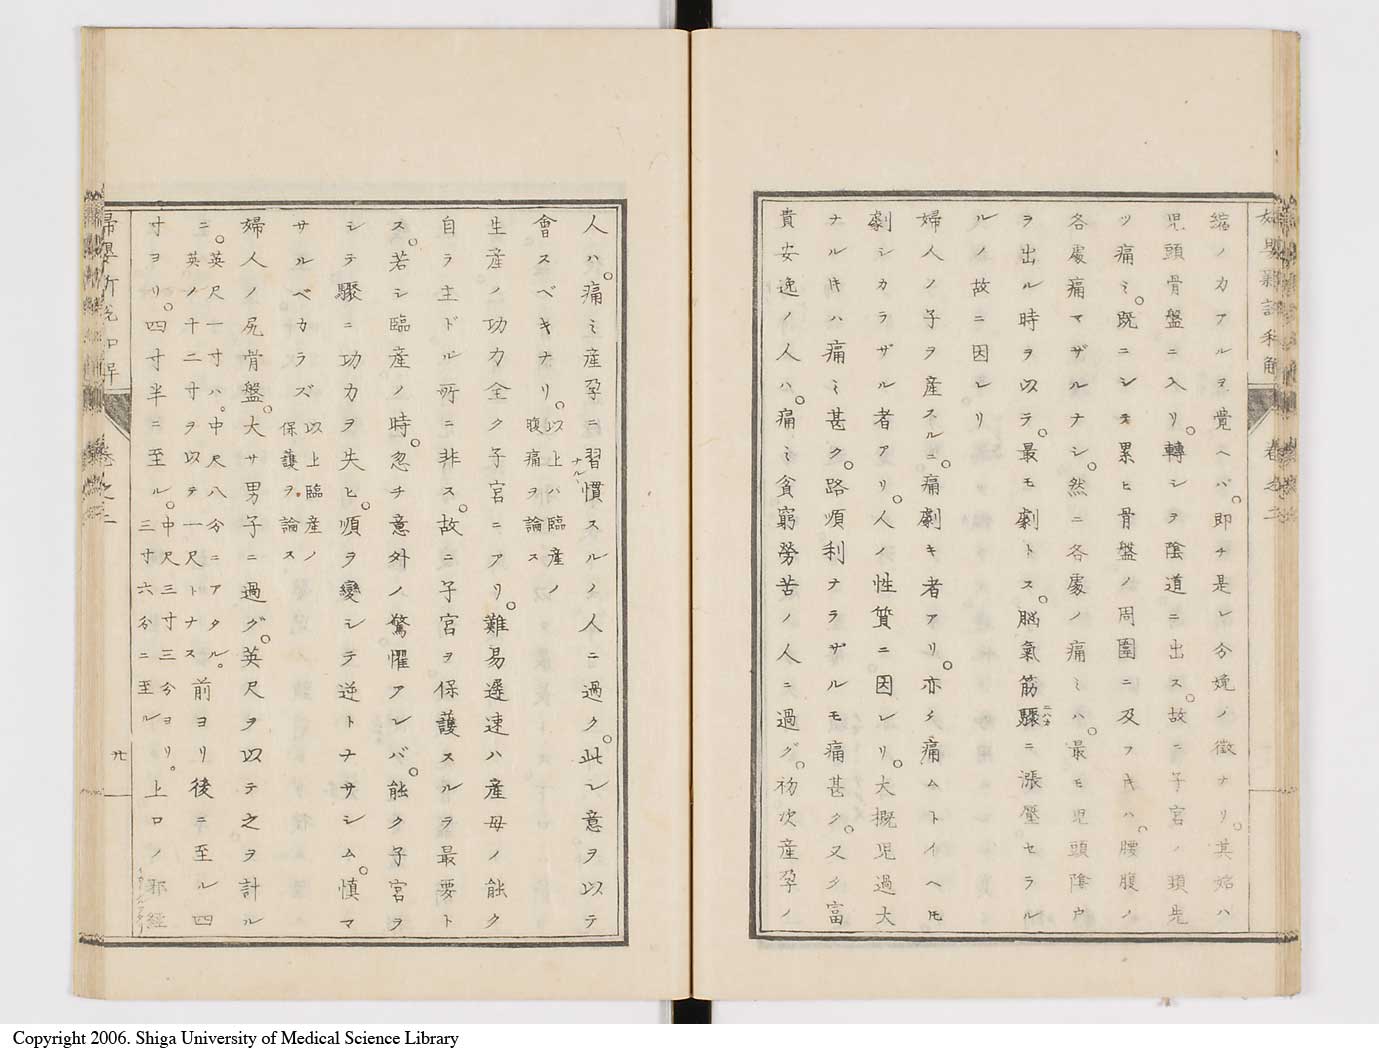 婦嬰新説和解 卷之二
縮ノカアルヲ覺ヘバ。即チ是レ今娩ノ徴ナリ。其始ハ
児頭骨盤ニ入リ。轉シヲ陰道ニ出ス。故ニ子宮ノ頸先
ツ痛ミ。既ニシテ累ヒ骨盤ノ周圍ニ及フキハ。腰腹ノ
各處痛マザルナシ。然ニ各處ノ痛ミハ。最モ児頭陰戸
ヲ出ル時ヲ以ラ。最モ劇トス。脳氣筋驟ニハカニ漲壓セラル
ルノ故ニ因レリ
婦人ノ子ヲ産スルニ。痛劇キ者アリ。亦タ痛ムトイヘ𪜈
劇シカラザル者アリ。人ノ性質ニ因レリ。大概児過大
ナルキハ痛ミ甚ク。路順利ナラザルモ痛甚ク。又タ富
貴安逸ノ人ハ。痛ミ貧窮勞苦ノ人ニ過グ。初次産孕ノ
人ハ。痛ミ産孕ニ習慣ナルヽスルノ人ニ過ク。此レ意ヲ以テ
會スベキナリ。以上ハ臨産ノ腹痛ヲ論ス
生産ノ功力全ク子宮ニアリ。難易遲速ハ産母ノ能ク
自ラ主ドル所ニ非ス。故ニ子宮ヲ保護スルヲ最要ト
ス。若シ臨産ノ時。忽チ意外ノ驚懼アレバ。能ク子宮ヲ
シテ驟ニ功力ヲ失ヒ。順ヲ變シテ逆トナサシム。慎マ
サルベカラズ 以上臨産ノ保護ヲ。論ス
婦人ノ尻骨盤。大サ男子ニ過グ。英尺ヲ以テ之ヲ計ル
ニ。英尺一寸ハ。中尺八分ニアタル。英ノ十二寸ヲ以テ一尺トナス 前ヨリ後ニ至ル四
寸ヨリ。四寸半ニ至ル。中尺三寸三分ヨリ。三寸六分ニ至ル 上口ノ邪經
婦嬰新説和解 卷之二
廿
Copyright 2006. Shiga University of Medical Science Library